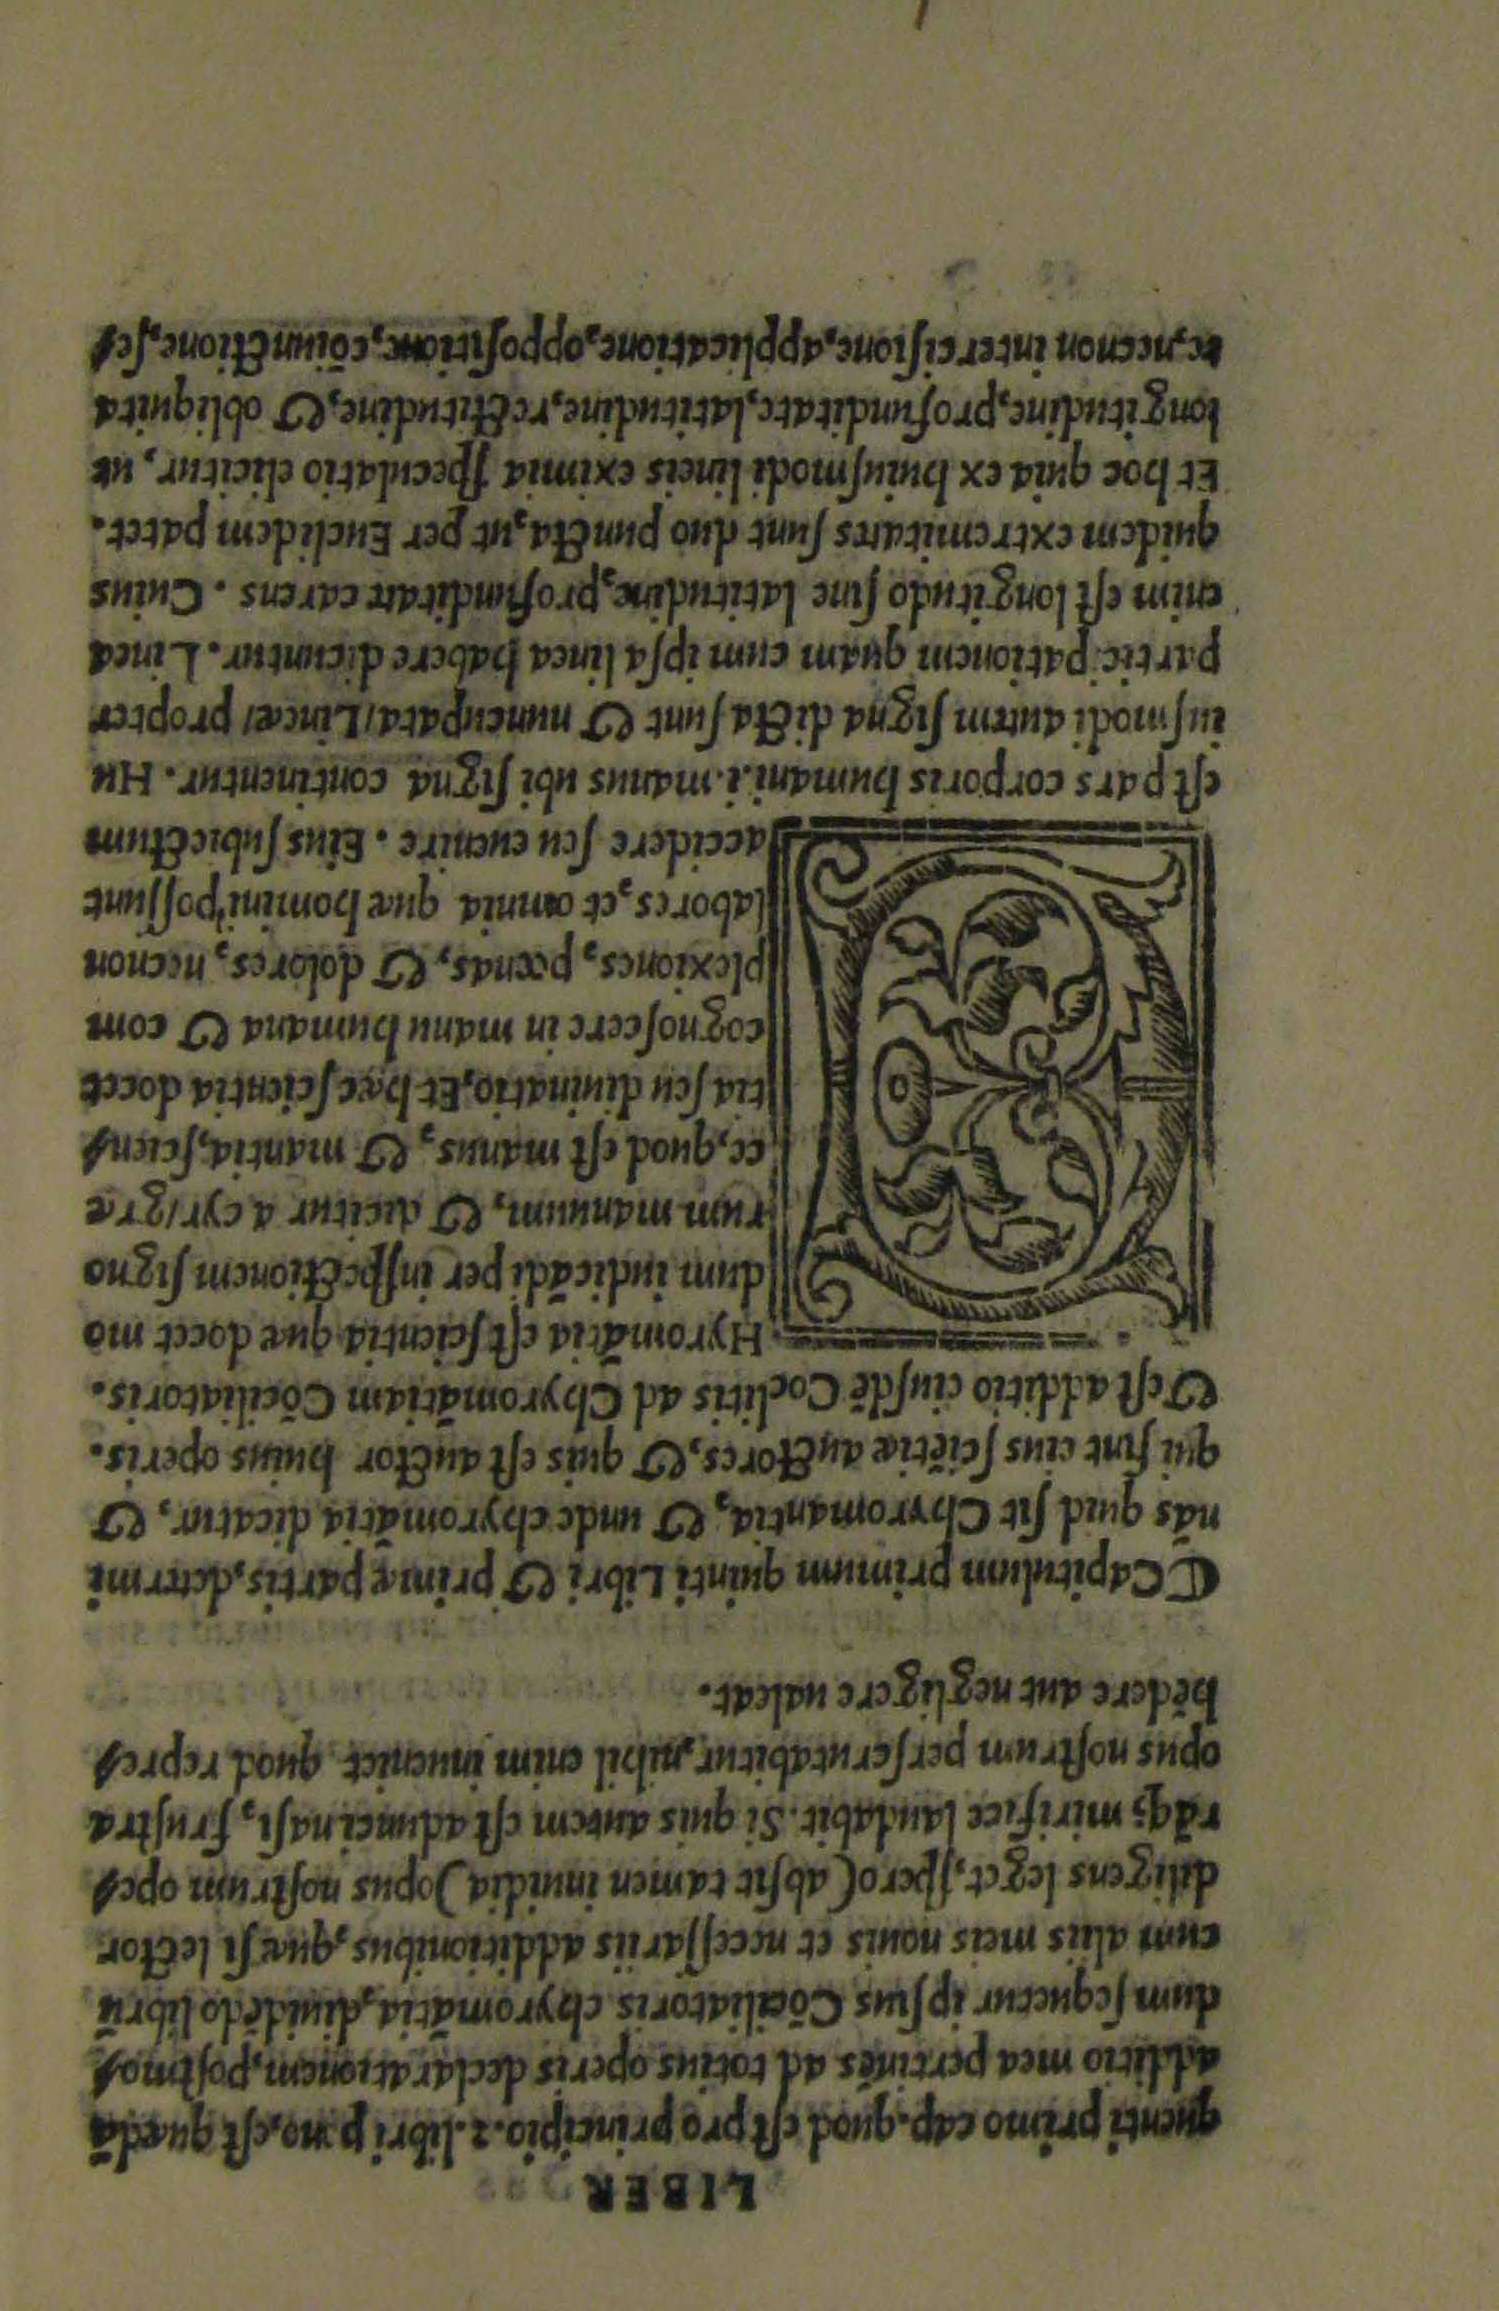 LIBER
quenti primo cap. quod est pro principio. 2. libri p no, est quædā
additio mea pertinēs ad totius operis declarationem, postmo
dum sequetur ipsius Cōciliatoris chyromātia, diuidēdo librū
cum aliis meis nouis et necessariis additionibus, quæ si lector
diligens leget, spero (absit tamen inuidia) opus nostrum ope
rāq; mirifice laudabit. Si quis autem est aduncinasi, frustra
opus nostrum perscrutabitur, nihil enim inueniet quod repre
hēdere aut negligere ualeat.
Capitulum primum quinti Libri & primæ partis, determi
nās quid sit Chyromantia, & unde chyromātia dicatur, &
qui sint eius sciētiæ auctores, & quis est auctor huius operis.
& est additio eiusdē Coclitis ad Chyromātiam Cōciliatoris.
CHyromātia est scientia quæ docet mo
dum iudicādi per inspectionem signo
rum manuum, & dicitur a cyr/græ
ce, quod est manus, & mantia, scien
tia seu diuinatio, Et hæc scientia docet
cognoscere in manu humana & com
plexiones, pœnas, & dolores, necnon
labores, et omnia quæ homini possunt
accidere seu euenire. Eius subiectum
est pars corporis humani. i. manus ubi signa continentur. Hu
iusmodi autem signa dicta sunt & nuncupata/Lineæ/ propter
participationem quam cum ipsa linea habere dicuntur. Linea
enim est longitudo sine latitudine, profunditate carens. Cuius
quidem extremitates sunt duo puncta, ut per Euclidem patet.
Et hoc quia ex huiusmodi lineis eximia speculatio elicitur, ut
longitudine, profunditate, latitudine, rectitudine, & obliquita
te, necnon intercisione, applicatione, oppositione, cōiunctione, se